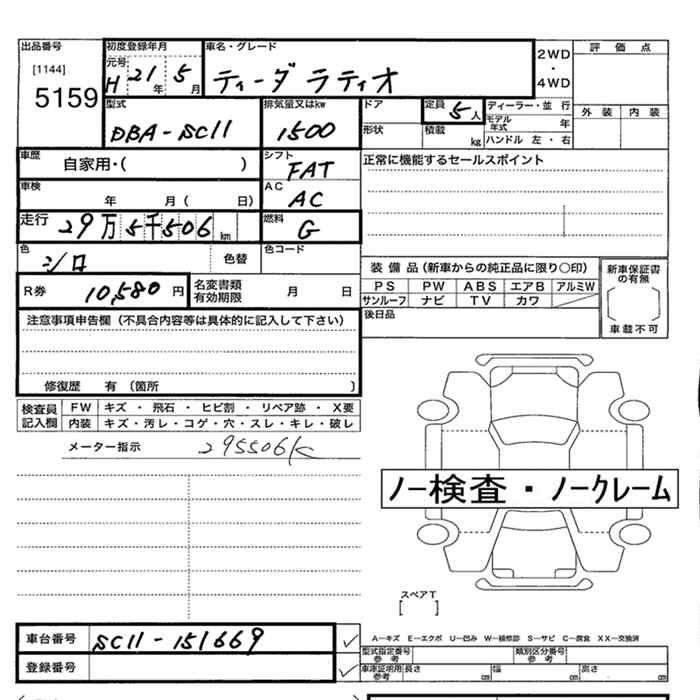 出品番号 初度登録年月 車名・グレード 評価点
[1144] 元号 2WD
5159 H 21 年 5 月 ティーダ ラティオ ・
4WD
型式 排気量又はkw ドア 定員 5 人 ディーラー・並 行 外装 内装
モデル年式 年
DBA-SC11 1500 形状 積載 kg ハンドル 左・右
車歴 自家用・( ) シフト FAT 正常に機能するセールスポイント
車検 年 月( 日) AC AC
走行 29万5千506 km 燃料 G
色 シロ 色替 色コード
装備品(新車からの純正品に限り○印) 新車保証書の有無
R券 10,580 円 名変書類有効期限 月 日 PS PW ABS エアB アルミW
サンルーフ ナビ TV カワ
注意事項申告欄(不具合内容等は具体的に記入して下さい) 後日品 車載不可
修復歴 有(箇所 )
検査員記入欄 FW キズ・飛石・ヒビ割・リペア跡・X要
内装 キズ・汚レ・コゲ・穴・スレ・キレ・破レ
メーター指示 295506K
ノー検査・ノークレーム
スペアT
[ ]
車台番号 SC11-151669 ✓
A−キズ E−エクボ U−凹み W−補修跡 S−サビ C−腐食 XX−交換済
型式指定番号参考 類別区分番号参考
登録番号 ✓ 車庫証明用参考 長さ cm 幅 cm 高さ cm